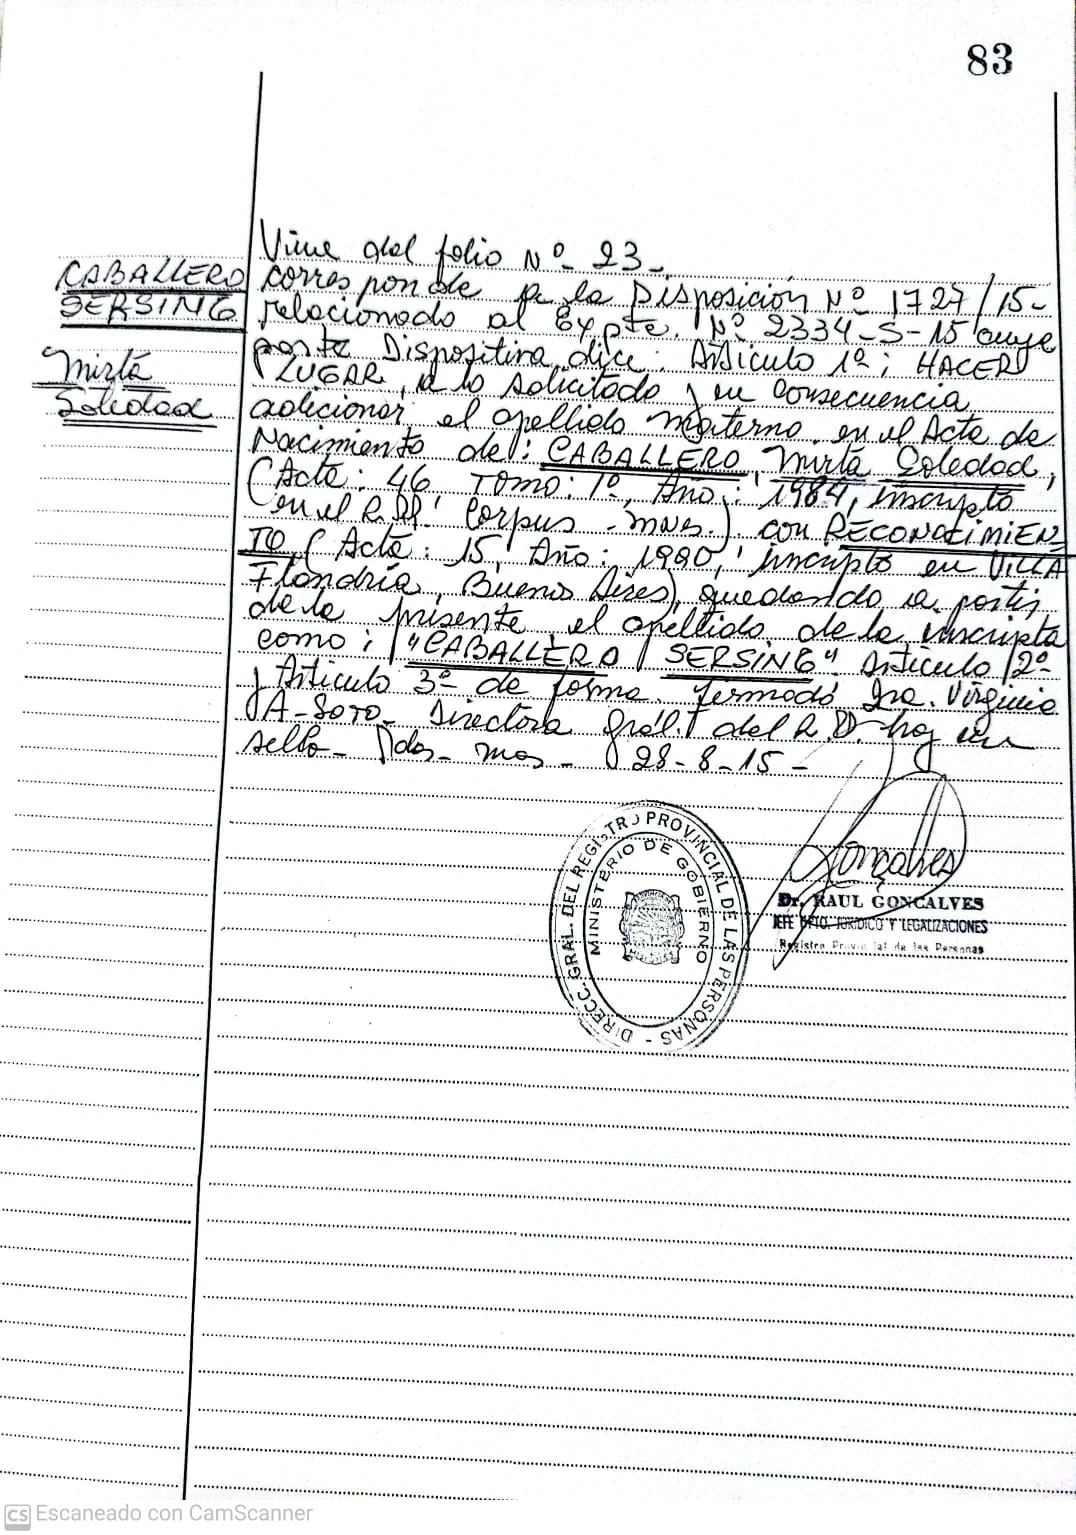 83
CABALLERO
SERSING
Mirta
Soledad
Viene del folio Nº 23-
corresponde a la Disposición Nº 1727/15-
relacionado al Expte. Nº 2334-S-15 cuya
parte Dispositiva dice: Artículo 1º: HACER
LUGAR, a lo solicitado y en consecuencia
adicionar el apellido Materno en el Acta de
Nacimiento de: CABALLERO, Mirta Soledad,
(Acta: 46 Tomo: 1º, Año: 1984, inscripto
en el R.PP. Corpus - Mnes.) con RECONOCIMIEN
TO (Acta: 15, Año: 1990, inscripto en VILLA
Flandria, Buenos Aires), quedando a partir
de la presente el apellido de la inscripta
como: "CABALLERO SERSING" Artículo 2º
y Artículo 3º de forma. Firmado Dra. Virginia
A-Soto- Directora Gral. del R.P. hay un
sello- Pdas- Mnes- 28-8-15-
Gonçalves
Dr. RAUL GONCALVES
JEFE DPTO. JURIDICO Y LEGALIZACIONES
Registro Provincial de las Personas
DIRECC. GRAL. DEL REGISTRO PROVINCIAL DE LAS PERSONAS -
MINISTERIO DE GOBIERNO
CS Escaneado con CamScanner